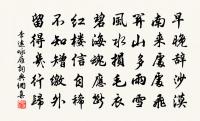 早晚辭沙漠
南來處處飛
關山多雨雪
風水損毛衣
碧海魂應斷
紅樓信自稀
不知矰繳外
留得幾行歸
李遠詠雁詞典網書